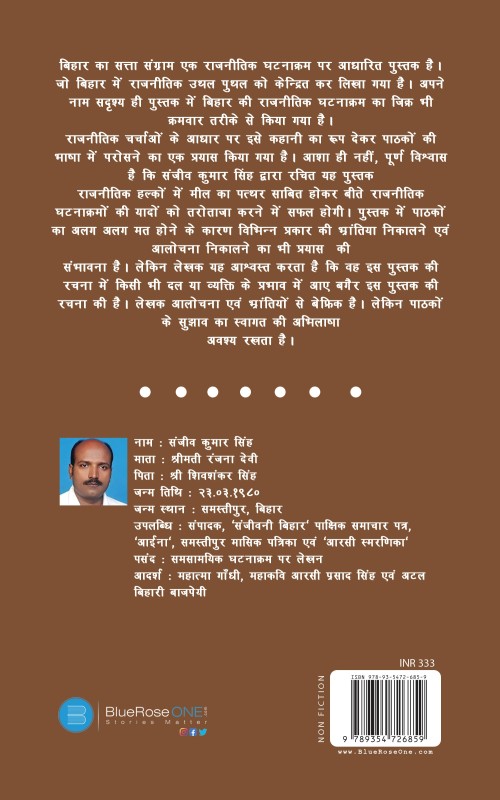 बिहार का सत्ता संग्राम एक राजनीतिक घटनाक्रम पर आधारित पुस्तक है।
जो बिहार में राजनीतिक उथल पुथल को केन्द्रित कर लिखा गया है। अपने
नाम सदृश्य ही पुस्तक में बिहार की राजनीतिक घटनाक्रम का जिक्र भी
क्रमवार तरीके से किया गया है।
राजनीतिक चर्चाओं के आधार पर इसे कहानी का रूप देकर पाठकों की
भाषा में परोसने का एक प्रयास किया गया है। आशा ही नहीं, पूर्ण विश्वास
है कि संजीव कुमार सिंह द्वारा रचित यह पुस्तक
राजनीतिक हल्कों में मील का पत्थर साबित होकर बीते राजनीतिक
घटनाक्रमों की यादों को तरोताजा करने में सफल होगी। पुस्तक में पाठकों
का अलग अलग मत होने के कारण विभिन्न प्रकार की भ्रांतिया निकालने एवं
आलोचना निकालने का भी प्रयास की
संभावना है। लेकिन लेखक यह आश्वस्त करता है कि वह इस पुस्तक की
रचना में किसी भी दल या व्यक्ति के प्रभाव में आए बगैर इस पुस्तक की
रचना की है। लेखक आलोचना एवं भ्रांतियों से बेफ्रिक है। लेकिन पाठकों
के सुझाव का स्वागत की अभिलाषा
अवश्य रखता है।
नाम : संजीव कुमार सिंह
माता : श्रीमती रंजना देवी
पिता : श्री शिवशंकर सिंह
जन्म तिथि : २३.०३.१९८०
जन्म स्थान : समस्तीपुर, बिहार
उपलब्धि : संपादक, 'संजीवनी बिहार' पाक्षिक समाचार पत्र,
'आईना', समस्तीपुर मासिक पत्रिका एवं 'आरसी स्मरणिका'
पसंद : समसामयिक घटनाक्रम पर लेखन
आदर्श : महात्मा गाँधी, महाकवि आरसी प्रसाद सिंह एवं अटल
बिहारी बाजपेयी
INR 333
NON FICTION
ISBN 978-93-5472-685-9
9 789354 726859
www.BlueRoseOne.com
BlueRose ONE
Stories Matter